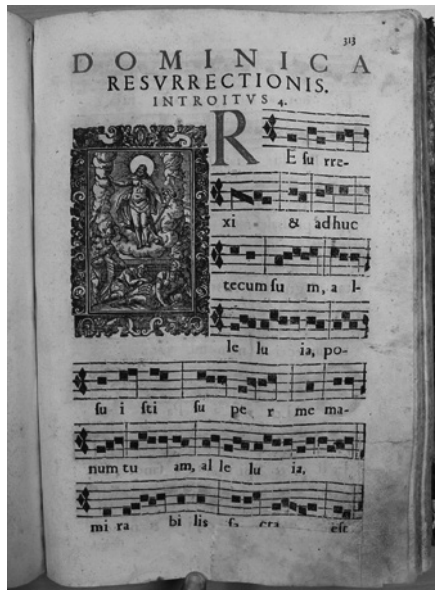 313
DOMINICA
RESVRRECTIONIS.
INTROITVS 4.
R
E ſu rre-
xi & adhuc
tecum ſu m, a l-
le lu ia, po-
ſu i ſti ſu pe r me ma-
num tu am, al le lu ia,
mi ra bi lis ſa cta eſt